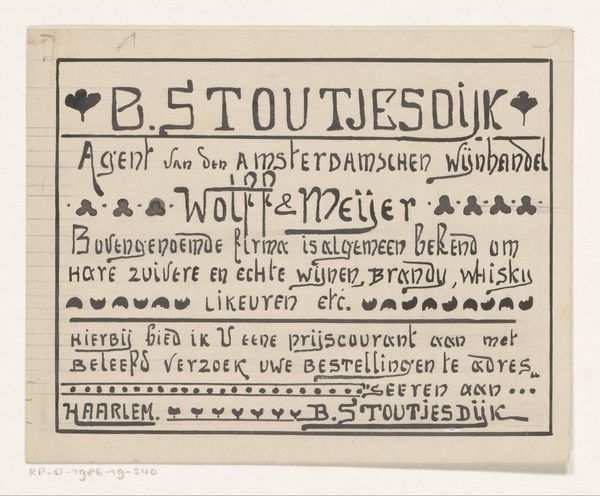 B. STOUTJESDIJK
Agent van den AMSTERDAMSCHEN Wijnhandel
Wolff & Meijer
Bovengenoemde firma is algemeen bekend om
HARE zuivere en echte wijnen, Brandy, Whisky
LIKEUREN etc.
HIERBIJ bied ik U eene prijscourant aan met
BELEEFD VERZOEK UWE BESTELLINGEN te adres„
„SEEREN AAN ...
HAARLEM. B. STOUTJESDIJK
RP-D-1986-19-540